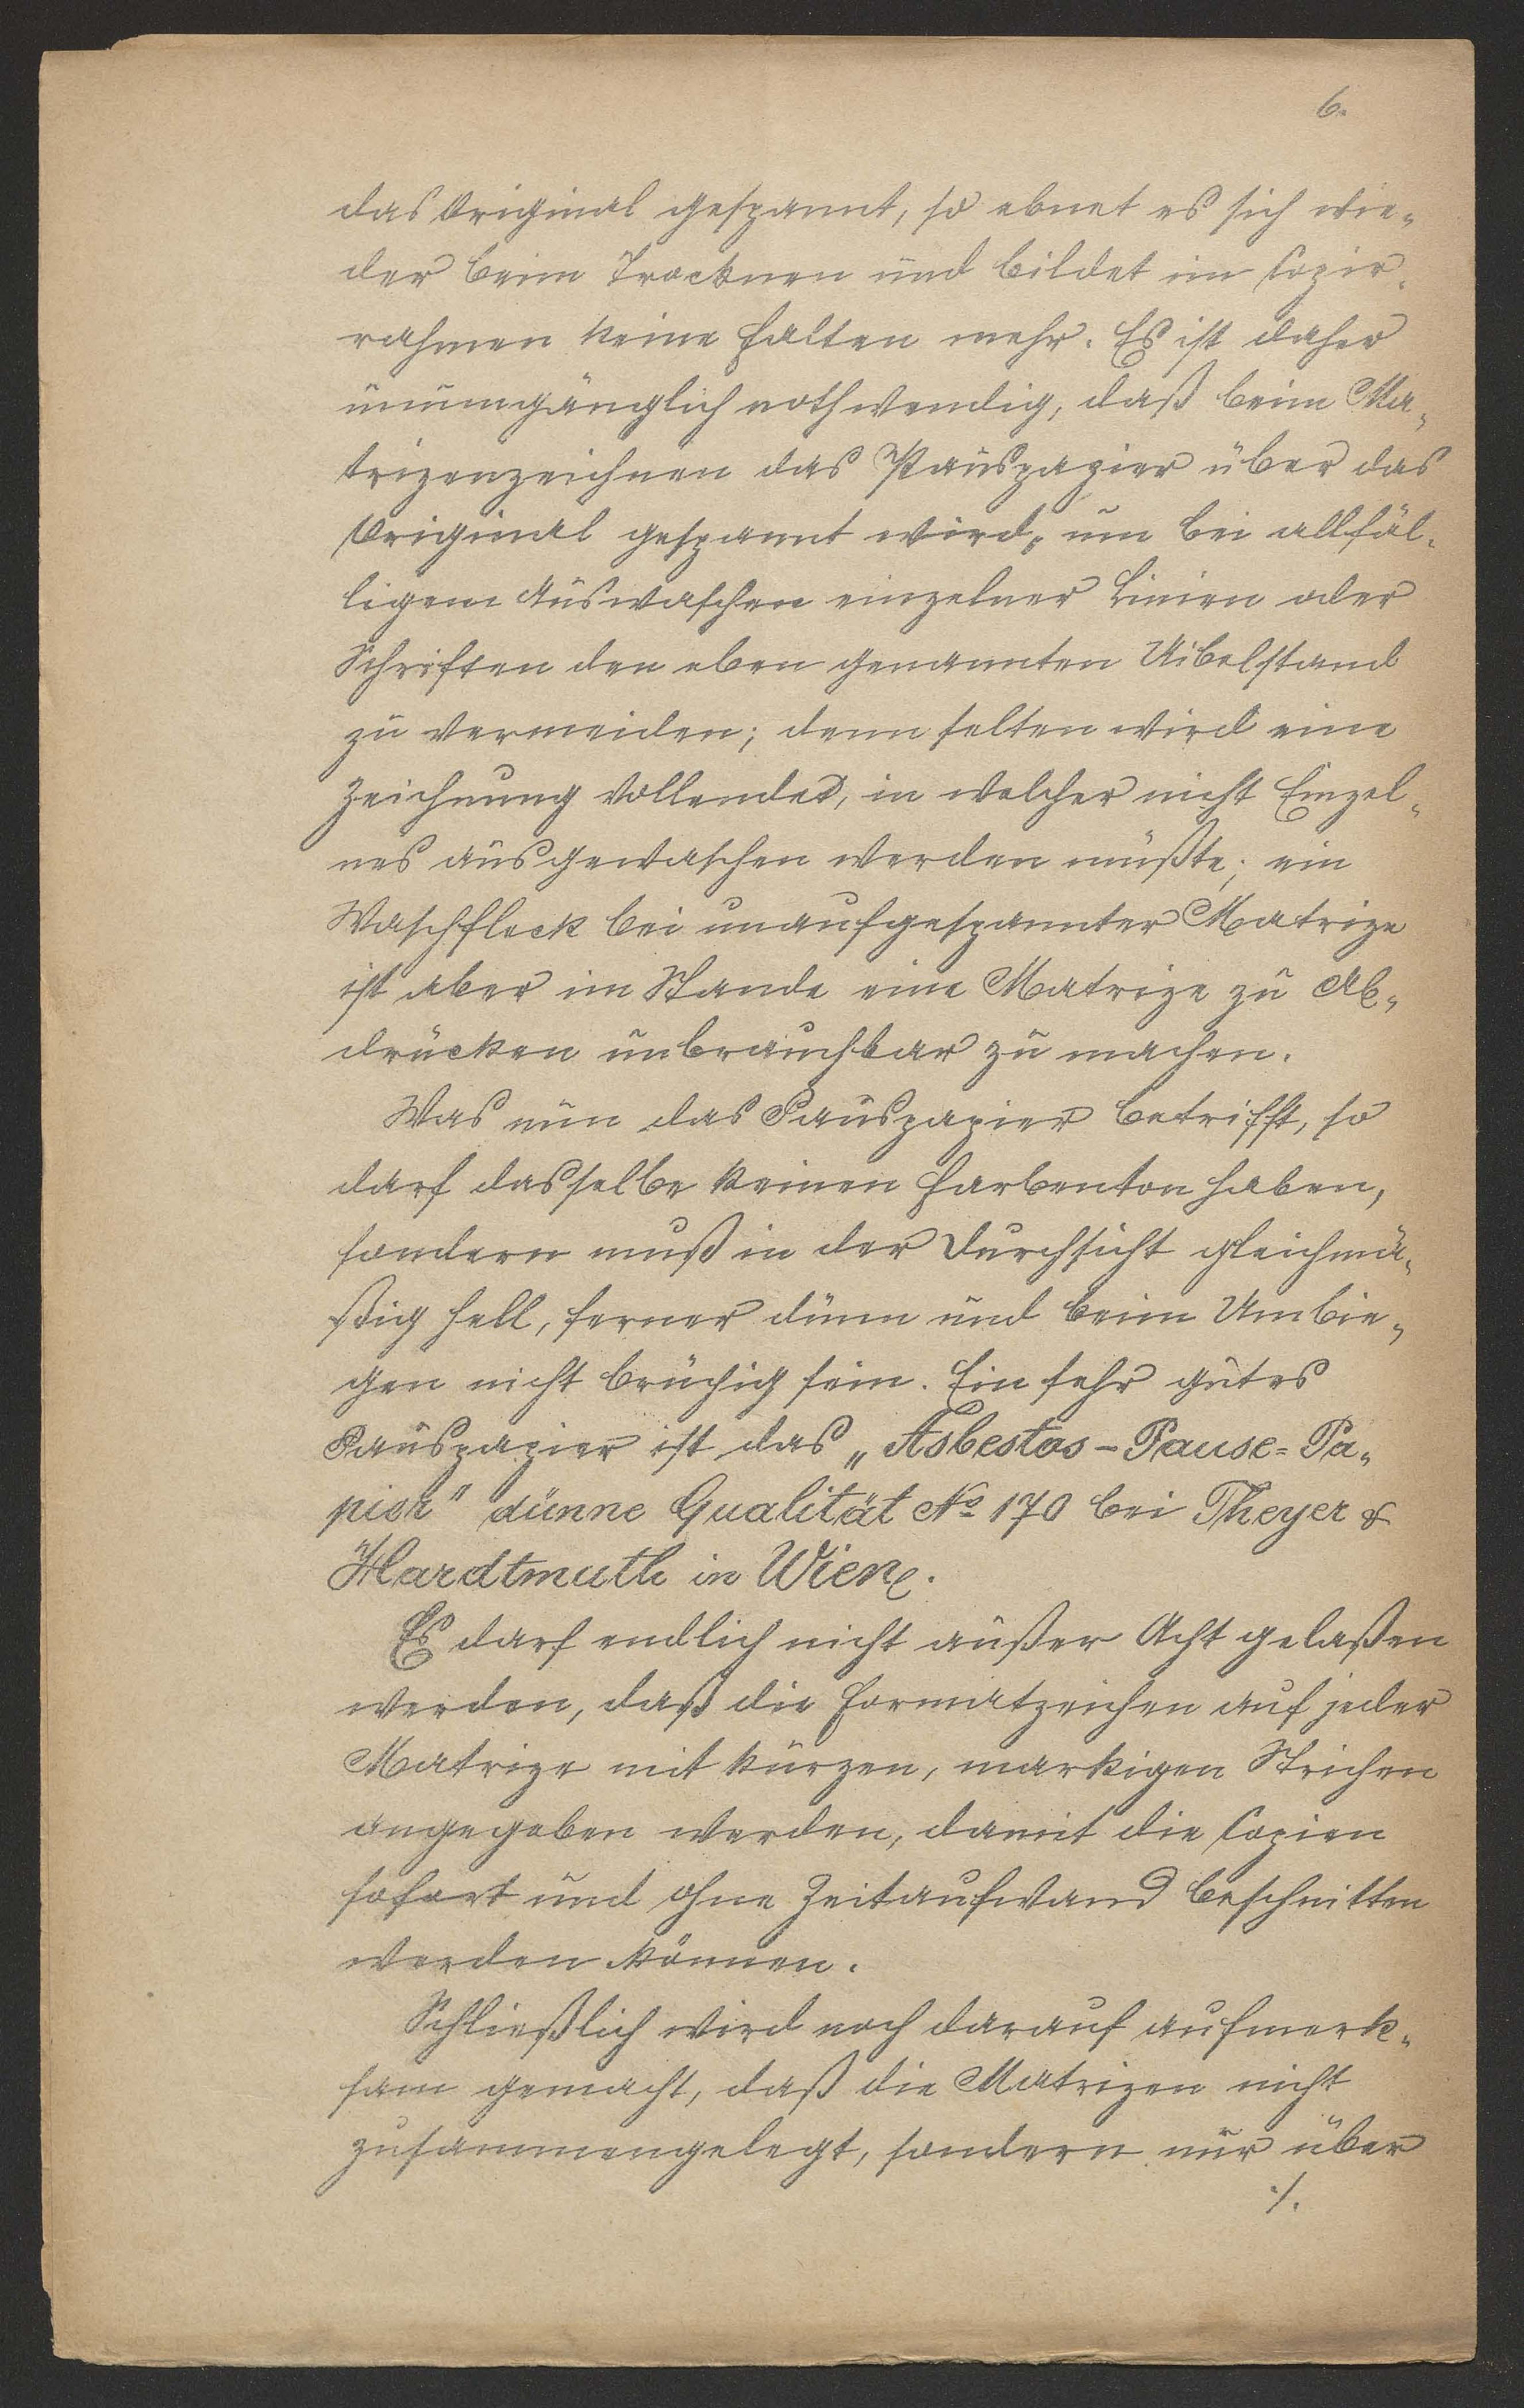 6.
das Original gespannt, so ebnet es sich wie-
der beim Trocknen und bildet im Copir-
rahmen keine Falten mehr. Es ist daher
unumgänglich nothwendig, daß beim Ma-
trizenzeichnen das Pauspapier über das
Original gespannt wird, um bei allfäl-
ligem Auswaschen einzelner Linien oder
Schriften den eben genannten Uibelstand
zu vermeiden; denn selten wird eine
Zeichnung vollendet, in welcher nicht Einzel-
nes ausgewaschen werden müßte; ein
Waschfleck bei unaufgespannter Matrize
ist aber im Stande eine Matrize zu Ab-
drücken unbrauchbar zu machen.
Was nun das Pauspapier betrifft, so
darf dasselbe keinen Farbenton haben,
sondern muß in der Durchsicht gleichmä-
ßig hell, ferner dünn und beim Umbie-
gen nicht brüchig sein. Ein sehr gutes
Pauspapier ist das „Asbestos-Pause-Pa-
pier" dünne Qualität No 170 bei Theyer &
Hardtmuth in Wien.
Es darf endlich nicht außer Acht gelaßen
werden, daß die Formatzeichen auf jeder
Matrize mit kurzen, markigen Strichen
angegeben werden, damit die Copien
sofort und ohne Zeitaufwand beschnitten
werden können.
Schließlich wird noch darauf aufmerk-
sam gemacht, daß die Matrizen nicht
zusammengelegt, sondern nur über
./.